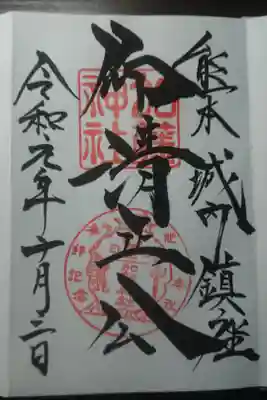 熊本城内鎮座
清正公
令和元年十月三日
加藤神社